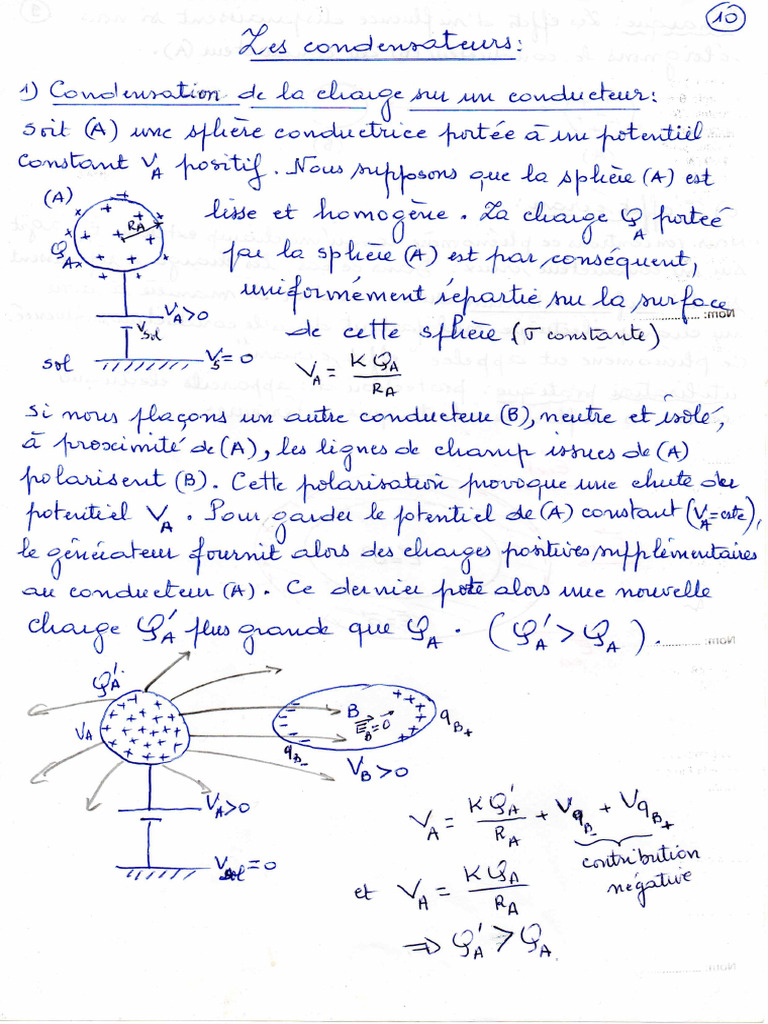 10
Les condensateurs:
1) Condensation de la charge sur un conducteur:
soit (A) une sphère conductrice portée à un potentiel
constant V_A positif. Nous supposons que la sphère (A) est
(A)
R_A
Q_A
lisse et homogène. La charge Q_A portée
par la sphère (A) est par conséquent,
uniformément répartie sur la surface
de cette sphère (σ constante)
V_A>0
V_sol
sol
V_s=0
V_A = KQ_A/R_A
si nous plaçons un autre conducteur (B), neutre et isolé,
à proximité de (A), les lignes de champ issues de (A)
polarisent (B). Cette polarisation provoque une chute du
potentiel V_A. Pour garder le potentiel de (A) constant (V_A=cste),
le générateur fournit alors des charges positives supplémentaires
au conducteur (A). Ce dernier porte alors une nouvelle
charge Q'_A plus grande que Q_A. (Q'_A > Q_A).
Q'_A
V_A
B
E_B=0
q_B-
q_B+
V_B>0
V_A>0
V_sol=0
V_A = KQ'_A/R_A + V_qB- + V_qB+
contribution
négative
et V_A = KQ_A/R_A
⇒ Q'_A > Q_A